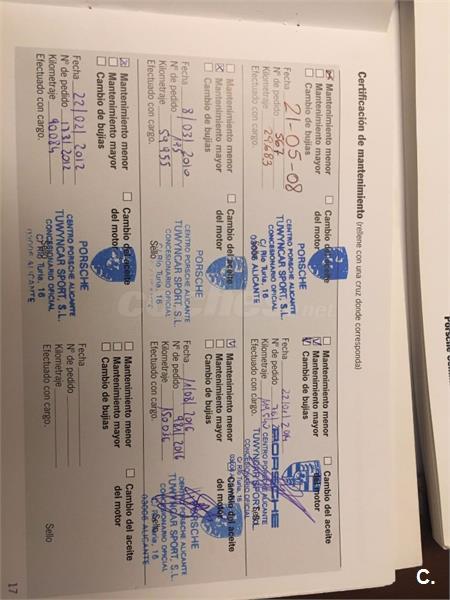 Certificación de mantenimiento (rellene con una cruz donde corresponda)
Mantenimiento menor
Mantenimiento mayor
Cambio de bujías
Cambio del aceite
del motor
Fecha 21-05-08
Nº de pedido 867
Kilometraje 29.683
Efectuado con cargo.
PORSCHE
CENTRO PORSCHE ALICANTE
TUWYNCAR SPORT, S.L.
CONCESIONARIO OFICIAL
C/ Río Turia, 16
03006 ALICANTE
Mantenimiento menor
Mantenimiento mayor
Cambio de bujías
Cambio del aceite
del motor
Fecha 8/03/2010
Nº de pedido 175
Kilometraje 59.355
Efectuado con cargo.
Sello
PORSCHE
CENTRO PORSCHE ALICANTE
TUWYNCAR SPORT, S.L.
CONCESIONARIO OFICIAL
C/ Río Turia, 16
Mantenimiento menor
Mantenimiento mayor
Cambio de bujías
Cambio del aceite
del motor
Fecha 22/02/2012
Nº de pedido
Kilometraje 90.084
Efectuado con cargo.
PORSCHE
CENTRO PORSCHE ALICANTE
TUWYNCAR SPORT, S.L.
CONCESIONARIO OFICIAL
C/ Río Turia, 16
Mantenimiento menor
Mantenimiento mayor
Cambio de bujías
Cambio del aceite
del motor
Fecha
Nº de pedido
Kilometraje
Efectuado con cargo.
PORSCHE
CENTRO PORSCHE ALICANTE
TUWYNCAR SPORT, S.L.
CONCESIONARIO OFICIAL
C/ Río Turia, 16
Mantenimiento menor
Mantenimiento mayor
Cambio de bujías
Cambio del aceite
del motor
Fecha
Nº de pedido
Kilometraje
Efectuado con cargo.
Sello
PORSCHE
CENTRO PORSCHE ALICANTE
TUWYNCAR SPORT, S.L.
CONCESIONARIO OFICIAL
03006 ALICANTE
Mantenimiento menor
Mantenimiento mayor
Cambio de bujías
Cambio del aceite
del motor
Fecha
Nº de pedido
Kilometraje
Efectuado con cargo.
Sello
17
coches.net
C.